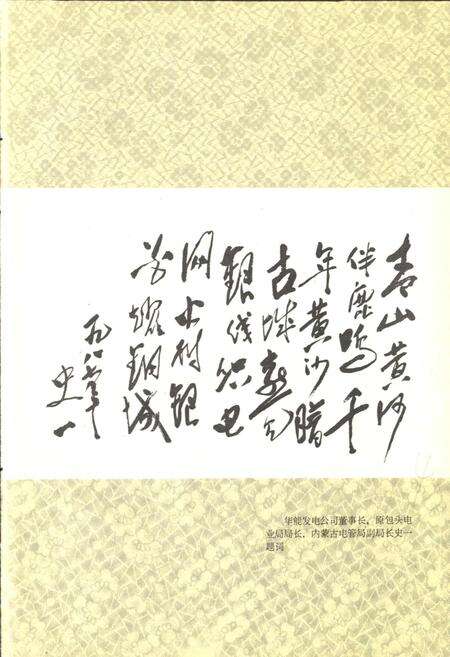 青山黄河
伴鹿鸣千
年黄沙暗
古城
银线织电
网火树银
花耀钢城
一九八七年
史一
华能发电公司董事长，原包头电
业局局长，内蒙古电管局副局长史一
题词